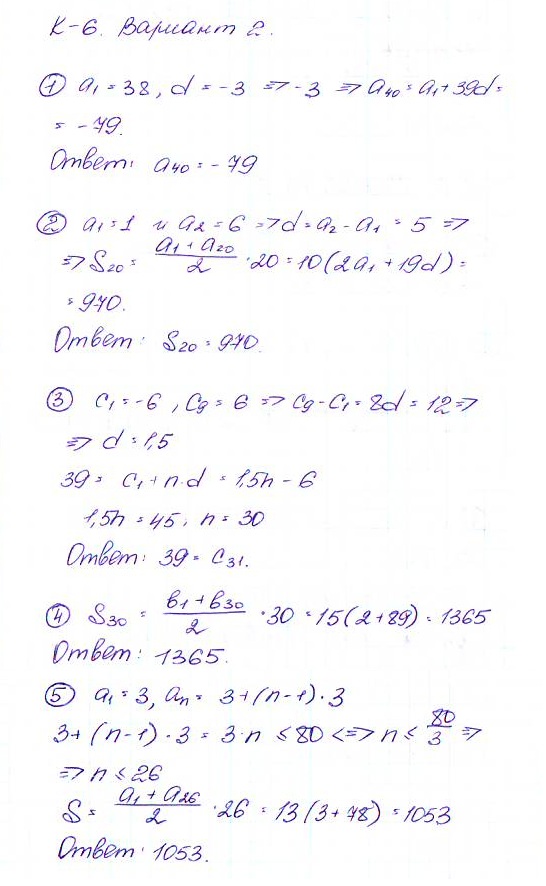 К-6. Вариант 2.
① a₁ = 38, d = -3 => -3 => a₄₀ = a₁ + 39d =
= -79.
Ответ: a₄₀ = -79
② a₁ = 1 и a₂ = 6 => d = a₂ - a₁ = 5 =>
=> S₂₀ = (a₁ + a₂₀)/2 · 20 = 10(2a₁ + 19d) =
= 970.
Ответ: S₂₀ = 970.
③ c₁ = -6, c₉ = 6 => c₉ - c₁ = 8d = 12 =>
=> d = 1,5
39 = c₁ + n·d = 1,5n - 6
1,5n = 45, n = 30
Ответ: 39 = c₃₁.
④ S₃₀ = (b₁ + b₃₀)/2 · 30 = 15(2 + 89) = 1365
Ответ: 1365.
⑤ a₁ = 3, aₙ = 3 + (n-1)·3
3 + (n-1)·3 = 3·n ≤ 80 <=> n ≤ 80/3 =>
=> n ≤ 26
S = (a₁ + a₂₆)/2 · 26 = 13(3 + 78) = 1053
Ответ: 1053.